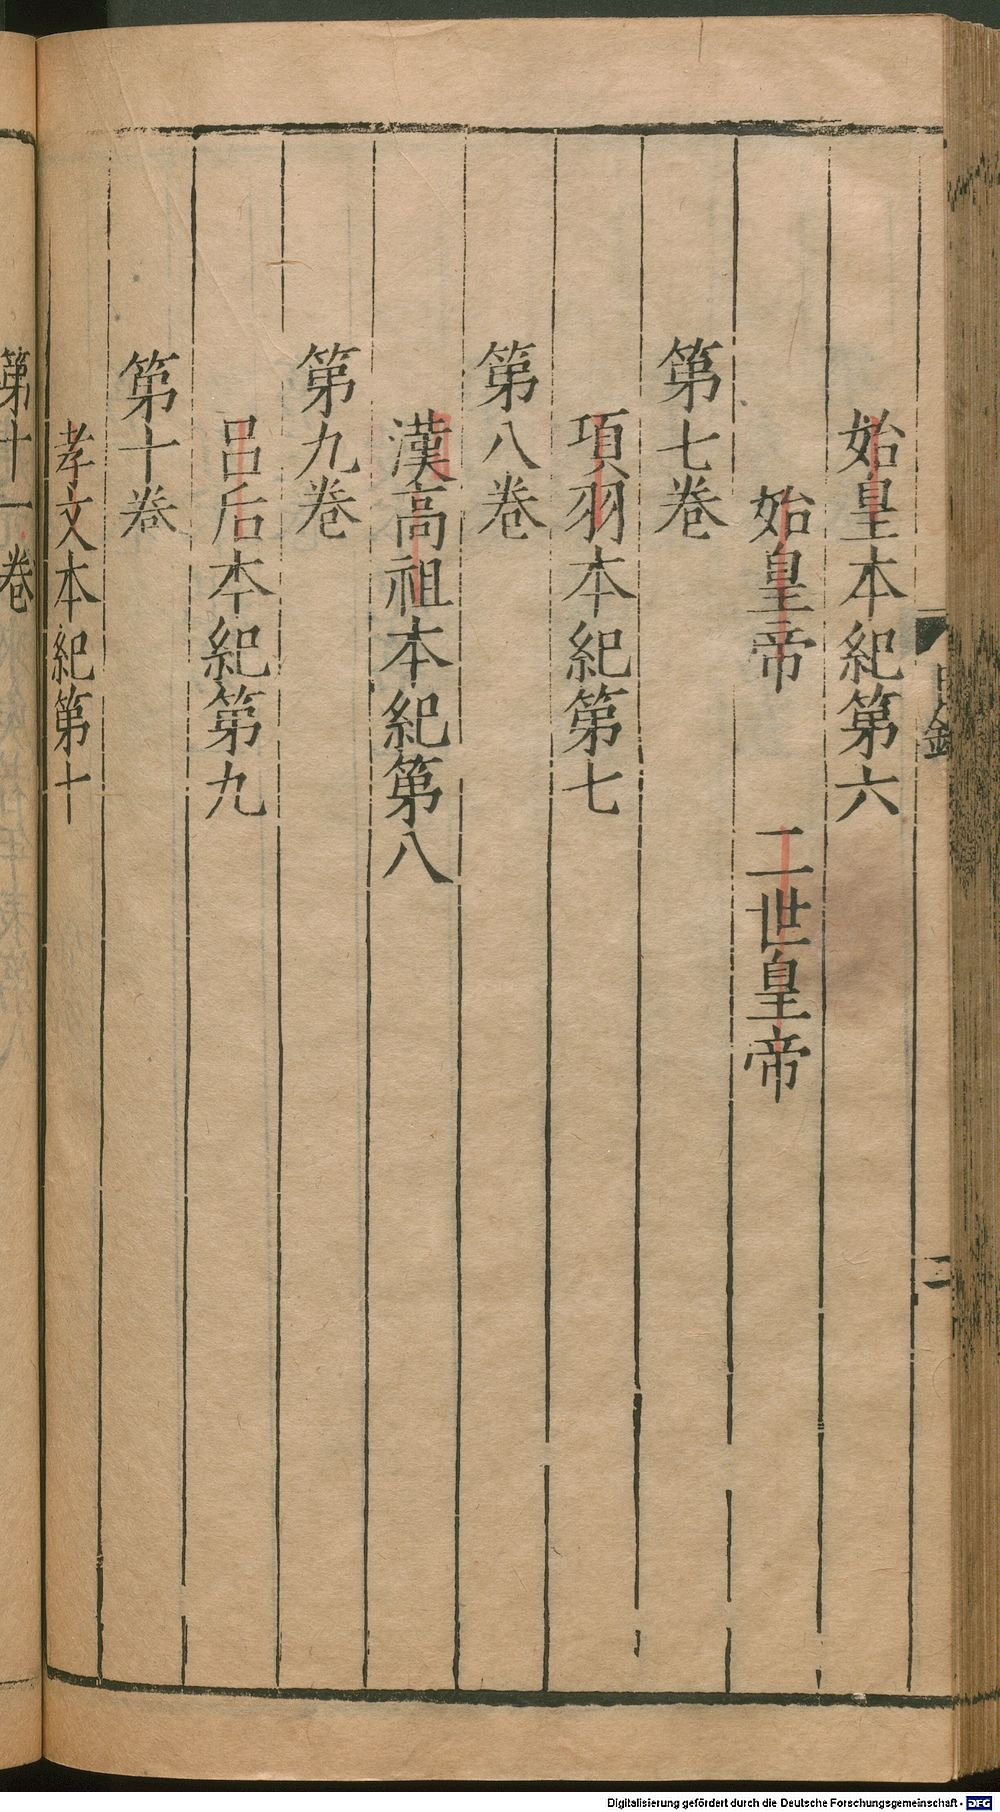 始皇本紀第六
始皇帝 二世皇帝
第七卷
項羽本紀第七
第八卷
漢高祖本紀第八
第九卷
呂后本紀第九
第十卷
孝文本紀第十
第十一卷
二
Digitalisierung gefördert durch die Deutsche Forschungsgemeinschaft - DFG